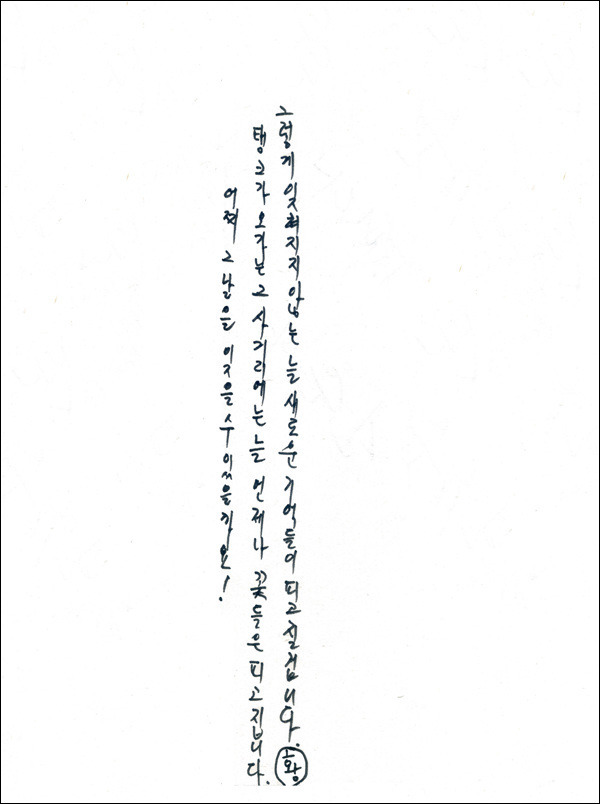 어찌 그 날을 잊을 수 있을까요!
탱크가 오가는 그 사거리에는 늘 언제나 꽃들은 피고 집니다.
그렇게 잊혀지지 않는 늘 새로운 기억들이 피고 질겁니다.